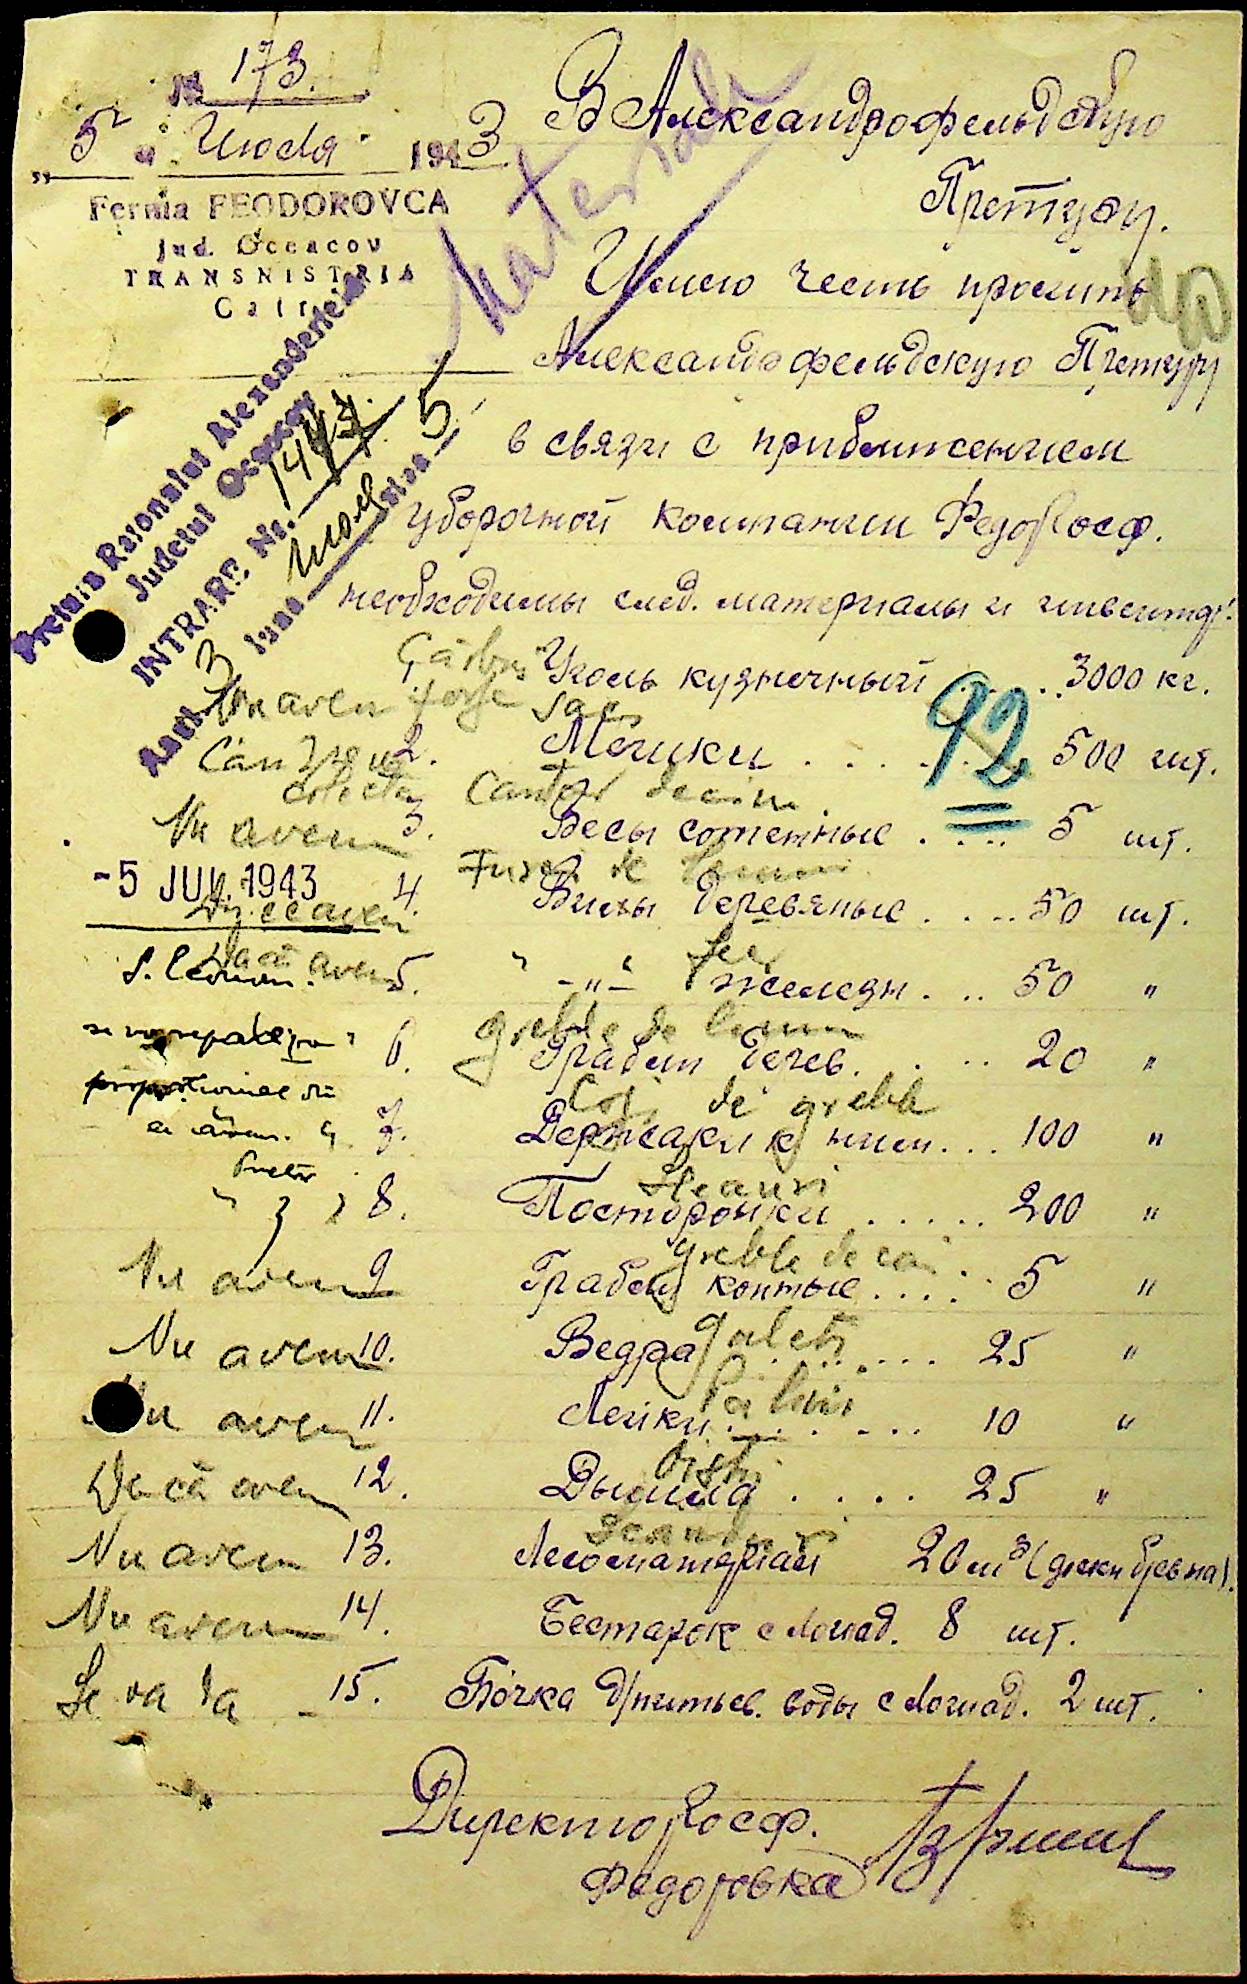 № 173.
"5" Июля 1943
Ferma FEODOROVCA
Jud. Oceacov
TRANSNISTRIA
Catre
В Александрофельдскую
Претуру.
Material
Имею честь просить
Александрофельдскую Претуру
в связи с приближением
уборочной компании Федоровсф.
необходимы след. материалы и инвентар:
Pretura Raionului Alexanderfeld
Judetul Oceacov
INTRARE Nr. 1447
Anul 3 luna июля ziua 5
92
Cărbuni
Nu avem forje
Уголь кузнечный . . 3000 кг.
saci
2. Мешки . . . . . 500 шт.
Cantar decim.
Nu avem 3. Весы сотенные . . . . 5 шт.
-5 JUL. 1943
Furci de lemn
4. Вилы деревяные . . . . 50 шт.
Dacă avem
fer
5. " -"- железн . . . 50 "
greble de lemn
6. Грабли дерев. . . . 20 "
Cozi de greble
7. Держаки к ним . . . 100 "
Pretor
Sleauri
8. Посторонки . . . . . 200 "
greble de cai
Nu avem 9 Грабли конные . . . . 5 "
galeti
Nu avem 10. Ведра . . . . . . 25 "
Pâlnii
Nu avem 11. Лейки . . . . . . 10 "
Oisti
Dacă avem 12. Дышла . . . . 25 "
Scanduri
Nu avem 13. Лесоматериал 20 м³ (доски бревна).
Nu avem 14. Бестарок с лошад. 8 шт.
Se va da - 15. Бочка д/питьев. воды с лошад. 2 шт.
Директор госф.
Федоровка